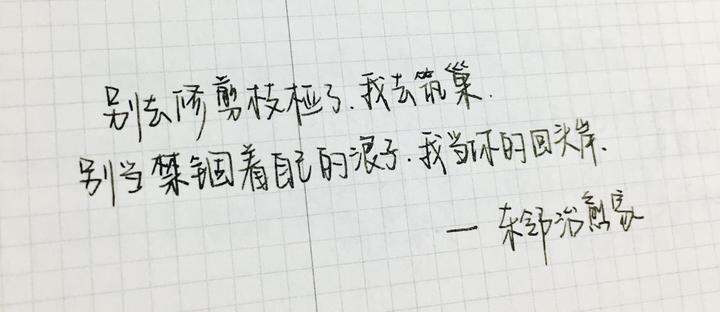 别去修剪枝桠了.我去筑巢.
别当禁锢着自己的浪子.我当你的回头岸.
— 东邻治愈家